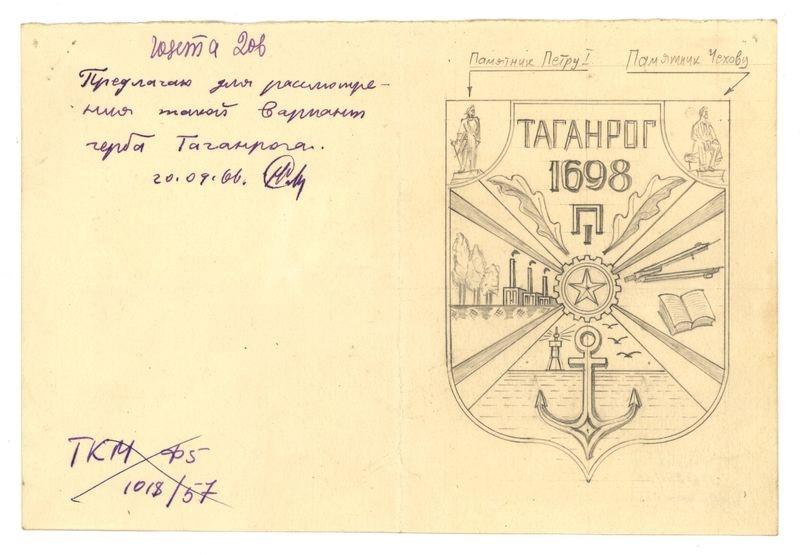 газета 20в
Предлагаю для рассмотре-
ния такой вариант
герба Таганрога.
20.09.66.
ТКМ Ф5
1018/57
Памятник Петру I
Памятник Чехову
ТАГАНРОГ
1698
П I